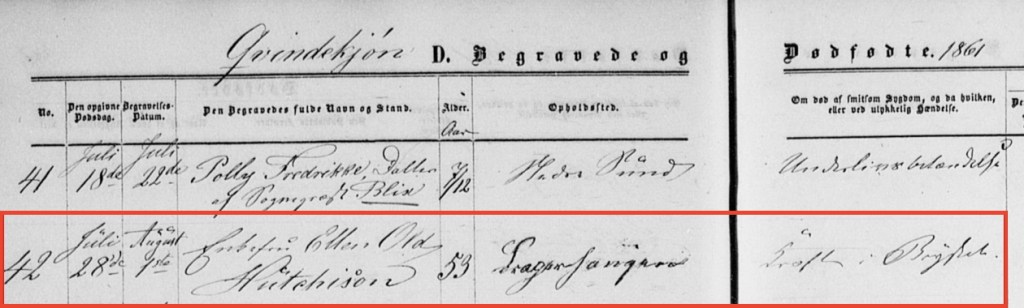 Qvindekjön D. Begravede og Dødfødte. 1861
No. Den opgivne Dødsdag. Begravelses-Datum. Den Begravedes fulde Navn og Stand. Alder. Opholdssted. Om død af smitsom Sygdom, og da hvilken,
eller ved ulykkelig Hændelse.
Aar
41 Juli 18de Juli 22de Polly Fredrikke, Datter 7/12 Nedre Sund Underlivsbetændelse
af Sognepræst Blix
42 Juli 28de August 1ste Enkefru Ellen Old 53 Kræft i Brystet.
Hutchison